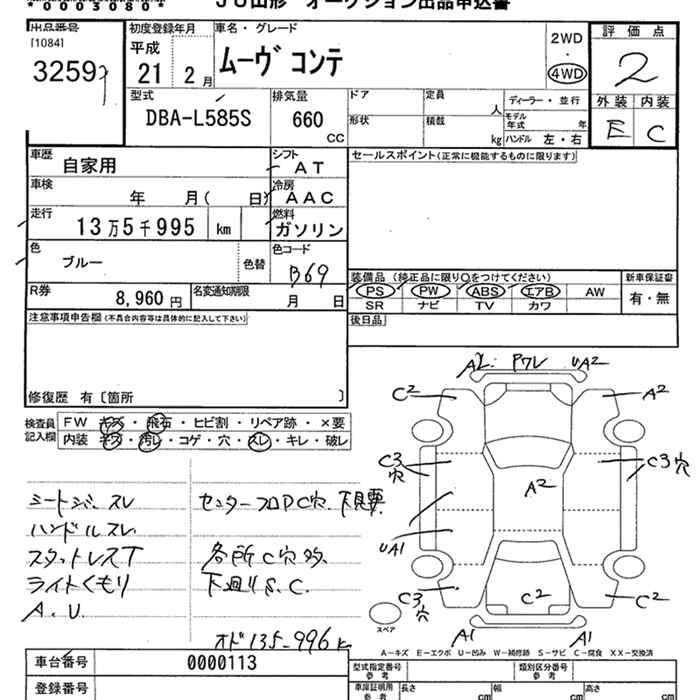 *0005080*
JU山形 オークション出品申込書
出品番号
[1084]
初度登録年月
平成
21 2月
車名・グレード
ムーヴ コンテ
2WD
・
4WD
評価点
2
外装 内装
E C
型式
DBA-L585S
排気量
660
CC
ドア
定員
人
ディーラー・並行
形状
積載
kg
モデル年式 年
ハンドル 左・右
車歴
自家用
シフト
AT
セールスポイント(正常に機能するものに限ります)
車検
年 月( 日)
冷房
AAC
走行
13万5千995 km
燃料
ガソリン
色
ブルー
色替
色コード
B69
R券
8,960円
名変通知期限
月 日
装備品 (純正品に限り○をつけてください)
新車保証書
PS PW ABS エアB AW
有・無
SR ナビ TV カワ
後日品
注意事項申告欄(不具合内容等は具体的に記入して下さい)
修復歴 有〔箇所 〕
検査員記入欄
FW キズ・飛石・ヒビ割・リペア跡・×要
内装 キズ・汚レ・コゲ・穴・スレ・キレ・破レ
シートシミ スレ
ハンドルスレ
スタットレスT
ライトくもり
A.U.
センターフロアC穴 下見要
各所C穴多
下廻りS.C.
オド135-996k
A2 Pワレ UA2
C2 A2
C3穴 C3穴
A2
UA1
C3穴 C2 C2
スペア
A1 A1
A-キズ E-エクボ U-凹み W-補修跡 S-サビ C-腐食 XX-交換済
車台番号 0000113
登録番号
型式指定番号 参考
類別区分番号 参考
車庫証明用 参考
長さ cm
幅 cm
高さ cm